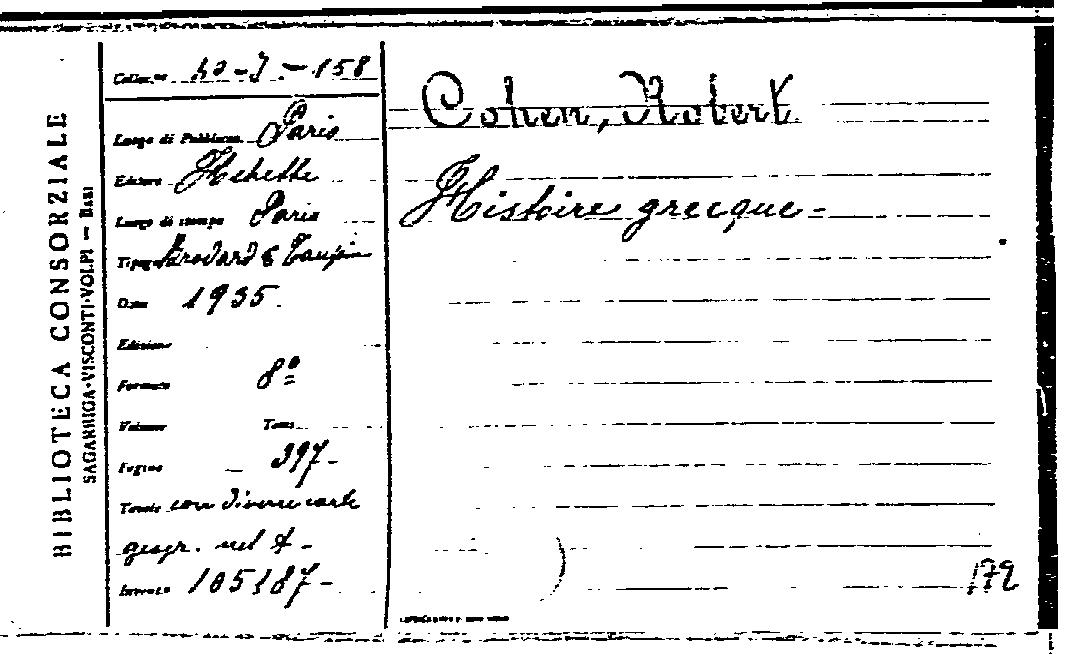 BIBLIOTECA CONSORZIALE
SAGARRIGA-VISCONTI-VOLPI — BARI
Collocaz. 40-J.-158
Luogo di Pubblicaz. Paris
Editore Hachette
Luogo di stampa Paris
Tipogr. Brodard & Taupin
Data 1935.
Edizione
Formato 8º
Volume Tomo
Pagine 397-
Tavole con diverse carte
geogr. nel t-
Inventario 105187-
Cohen, Robert
Histoire grecque-
172